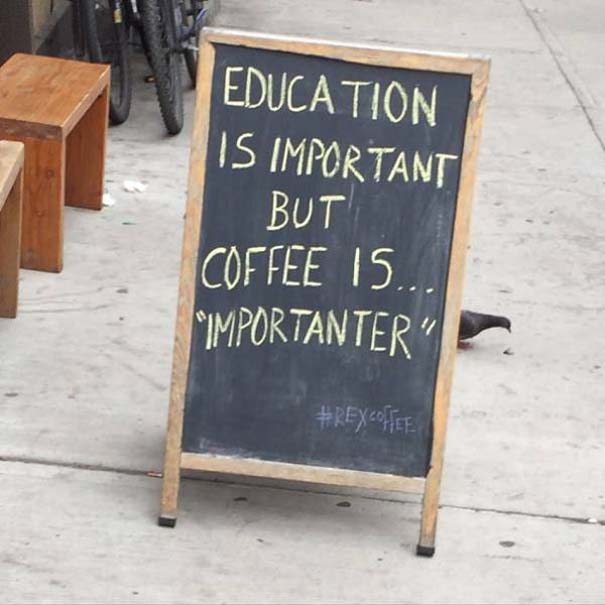 EDUCATION
IS IMPORTANT
BUT
COFFEE IS...
"IMPORTANTER"
#REXCOFFEE